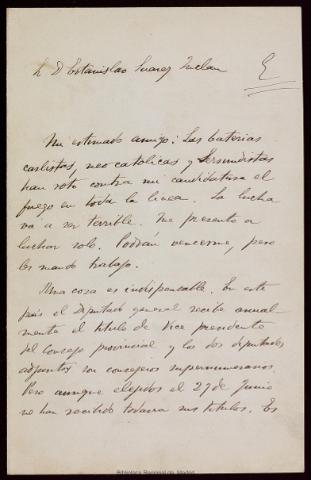 Sr D Estanislao Suarez Inclan
Mi estimado amigo: Las baterias
carlistas, neo catolicas y
han roto contra mi candidatura el
fuego en toda la linea. La lucha
va a ser terrible. Me presento a
luchar solo. Podrán vencerme, pero
les mando trabajo.
Una cosa es indispensable. En este
pais el Diputado general recibe anual-
mente el titulo de Vice presidente
del Consejo provincial y los dos diputados
adjuntos son consejeros supernumerarios.
Pero aunque elejidos el 27 de Junio
no han recibido todavia sus titulos. Es
Biblioteca Nacional de Madrid